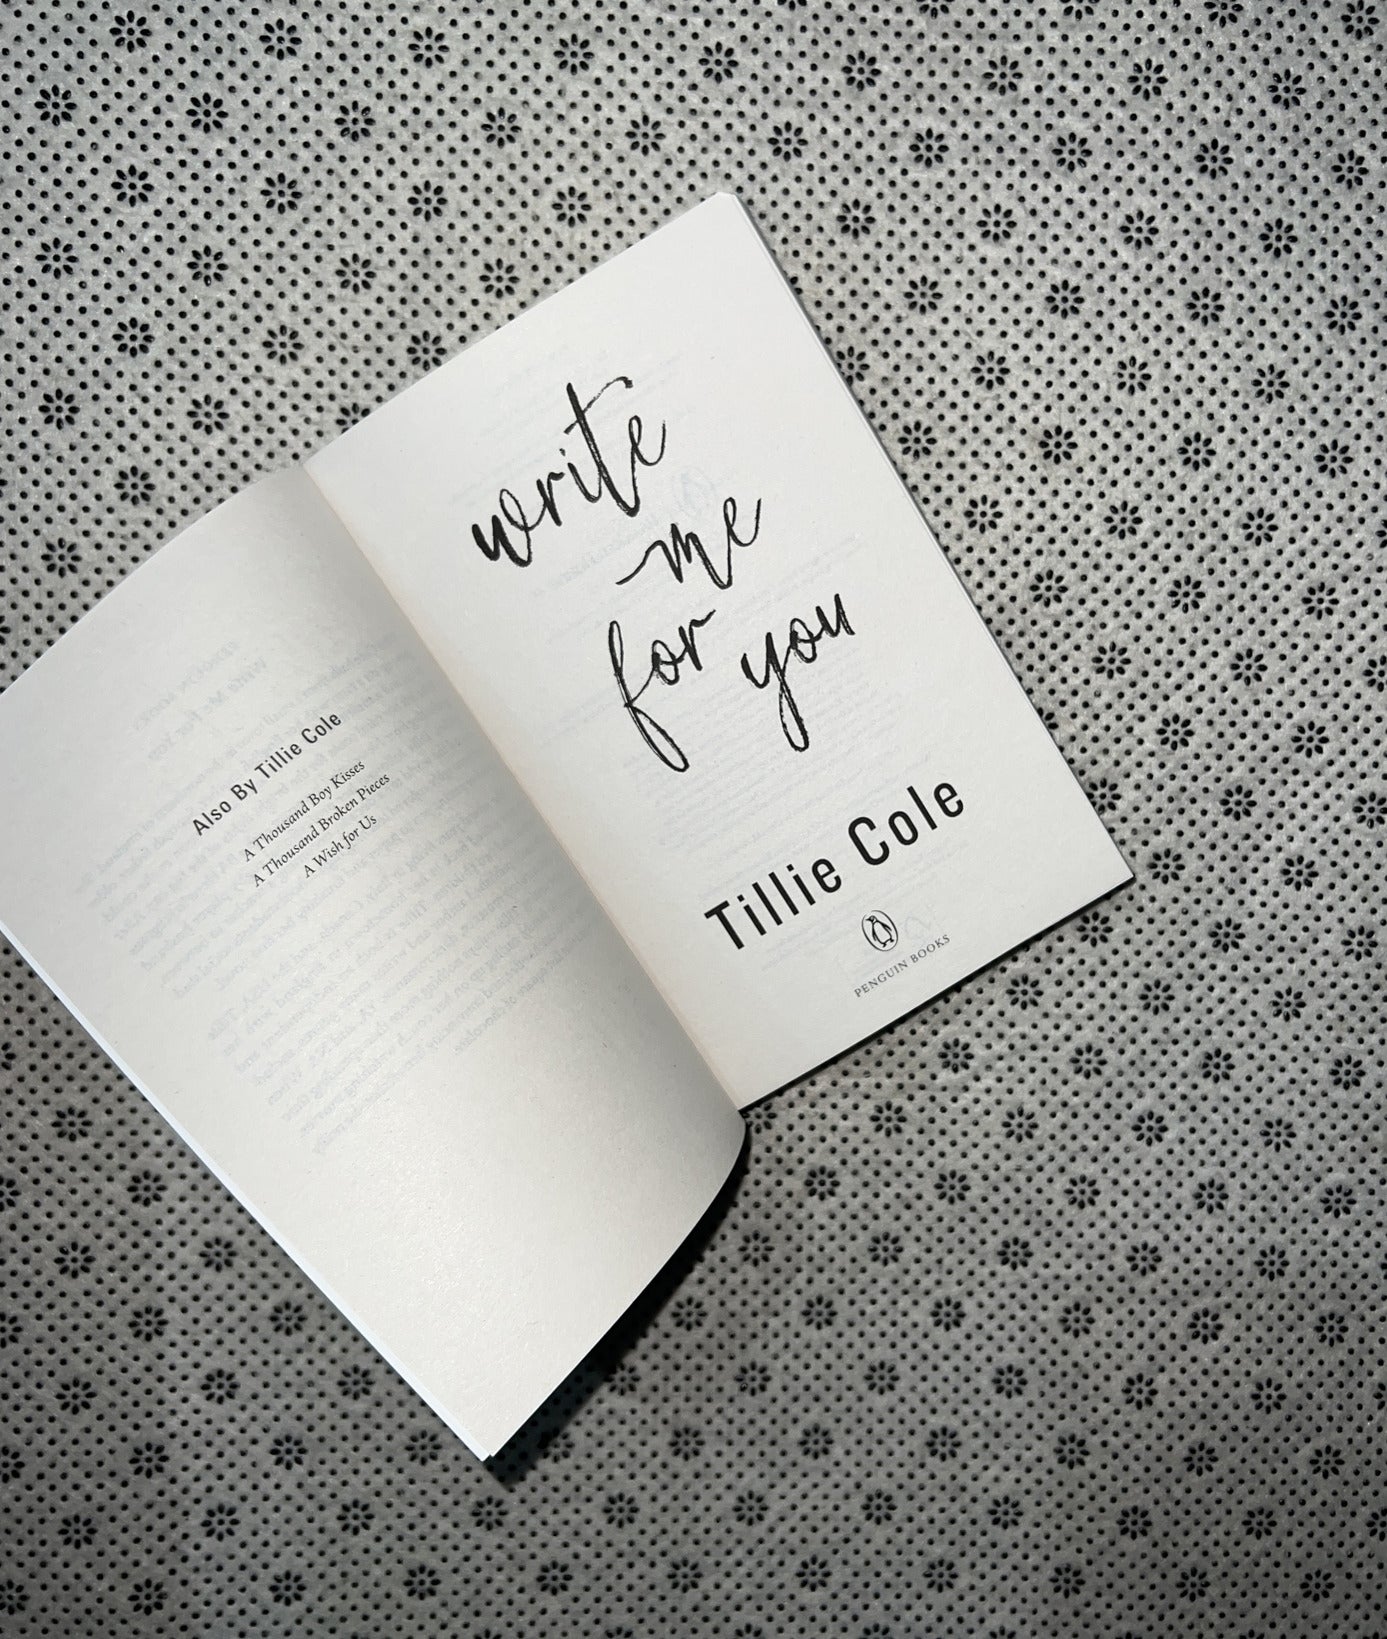 Also By Tillie Cole
A Thousand Boy Kisses
A Thousand Broken Pieces
A Wish for Us
write
me
for you
Tillie Cole
PENGUIN BOOKS